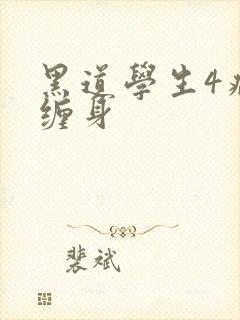 黑道學生4
缠身
裴斌